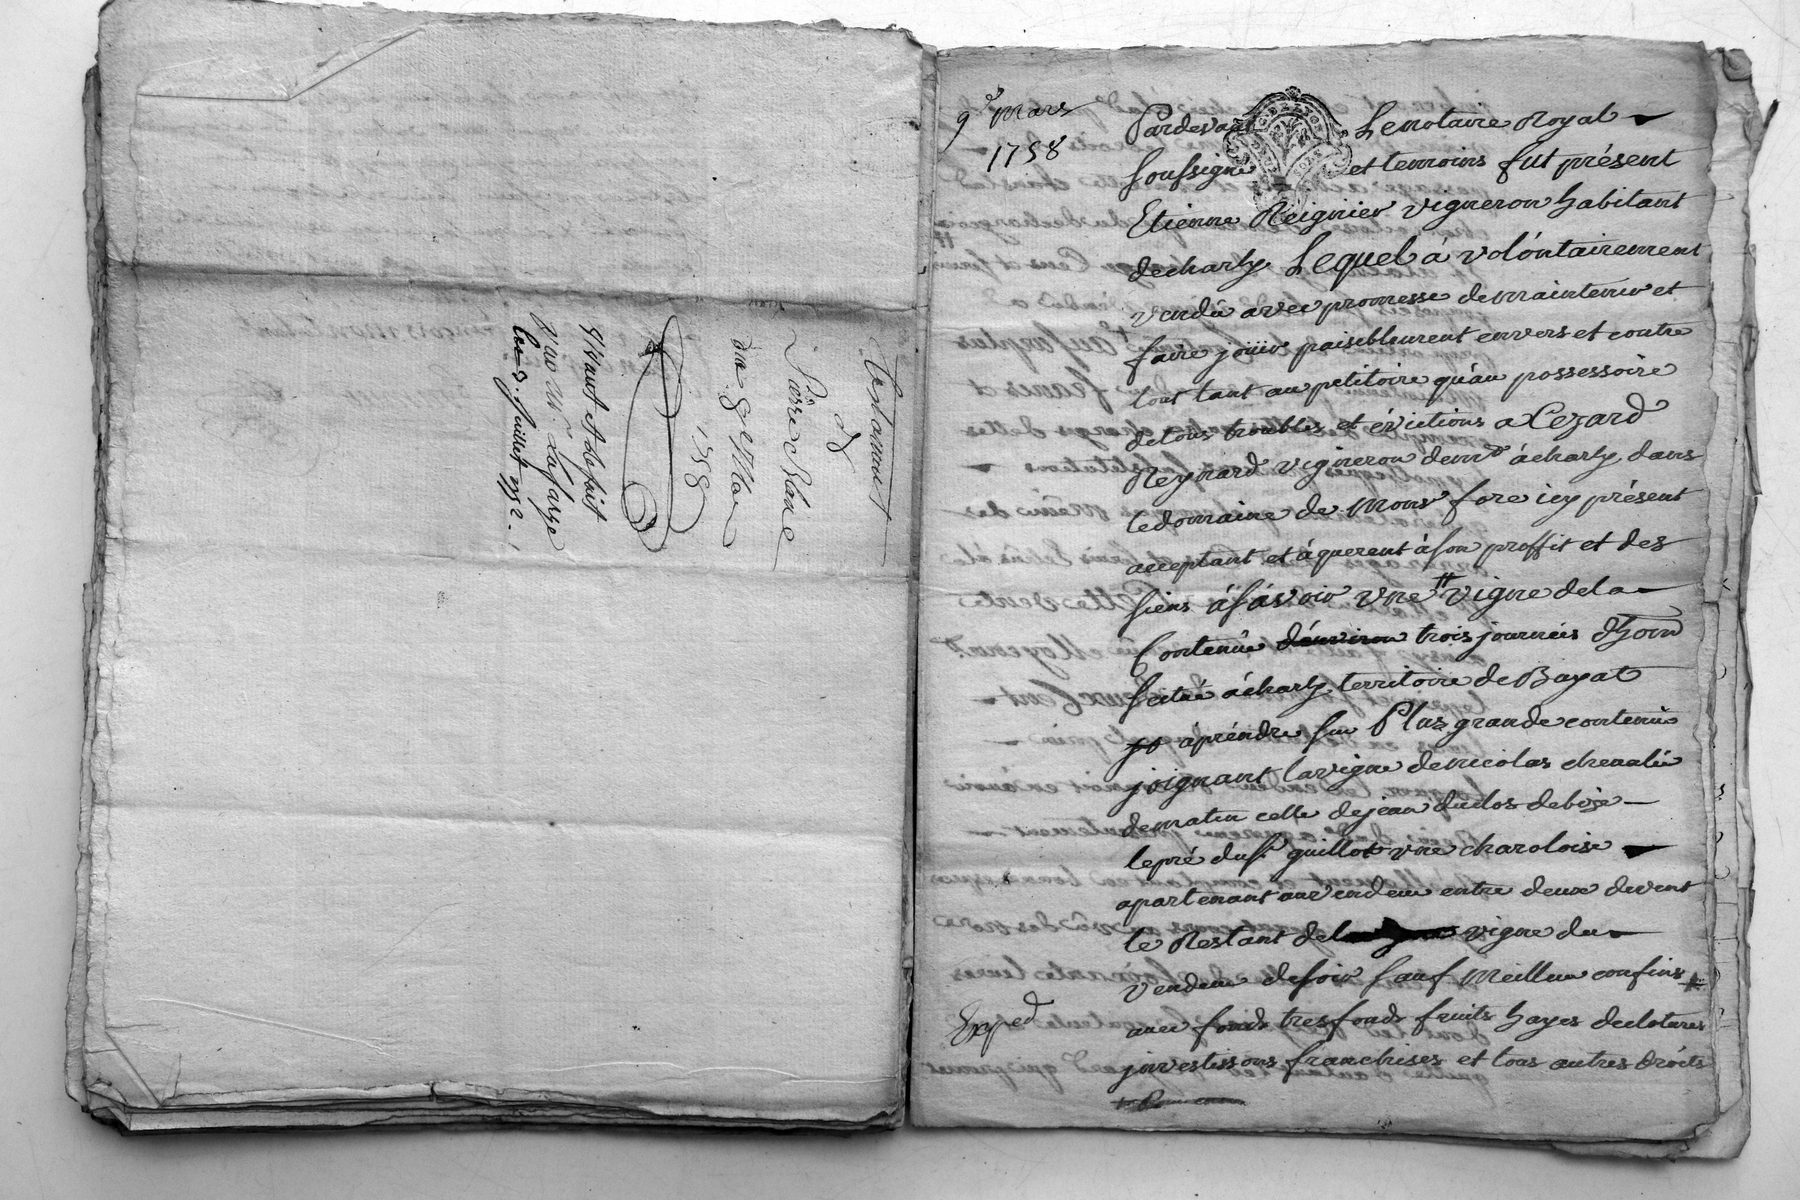 Testament
de
Pierre Blanc
1758
9e. mars
1758
Pardevant Le notaire Royal
soussigné et temoins fut présent
Etienne Reignier vigneron habitant
decharly Lequel á volóntairement
vendu avec promesse de maintenir et
faire joüir paisiblement envers et contre
tous tant au petitoire qu'au possessoire
detous troubles et évictions a Cezard
Reynard vigneron demt ácharly dans
ledomaine de Monsr fore icy présent
acceptant et áquerent áson proffit et des
siens ásávoir une vigne dela
Contenüe d'environ trois journées d'hom
scitué ácharly territoire de Bayat
áprendre sur Plus grande contenüe
joignant lavigne denicolas chevalie
dematin celle dejean duclos debize
lepré dusr guillot une charoloise
apartenant auvendeur entre deux devent
le Restant del vigne du
vendeur desoir sauf Meilleur confins
avec fonds tresfonds fruits hayes declotures
jnvestissons franchises et tous autres droits
Exped